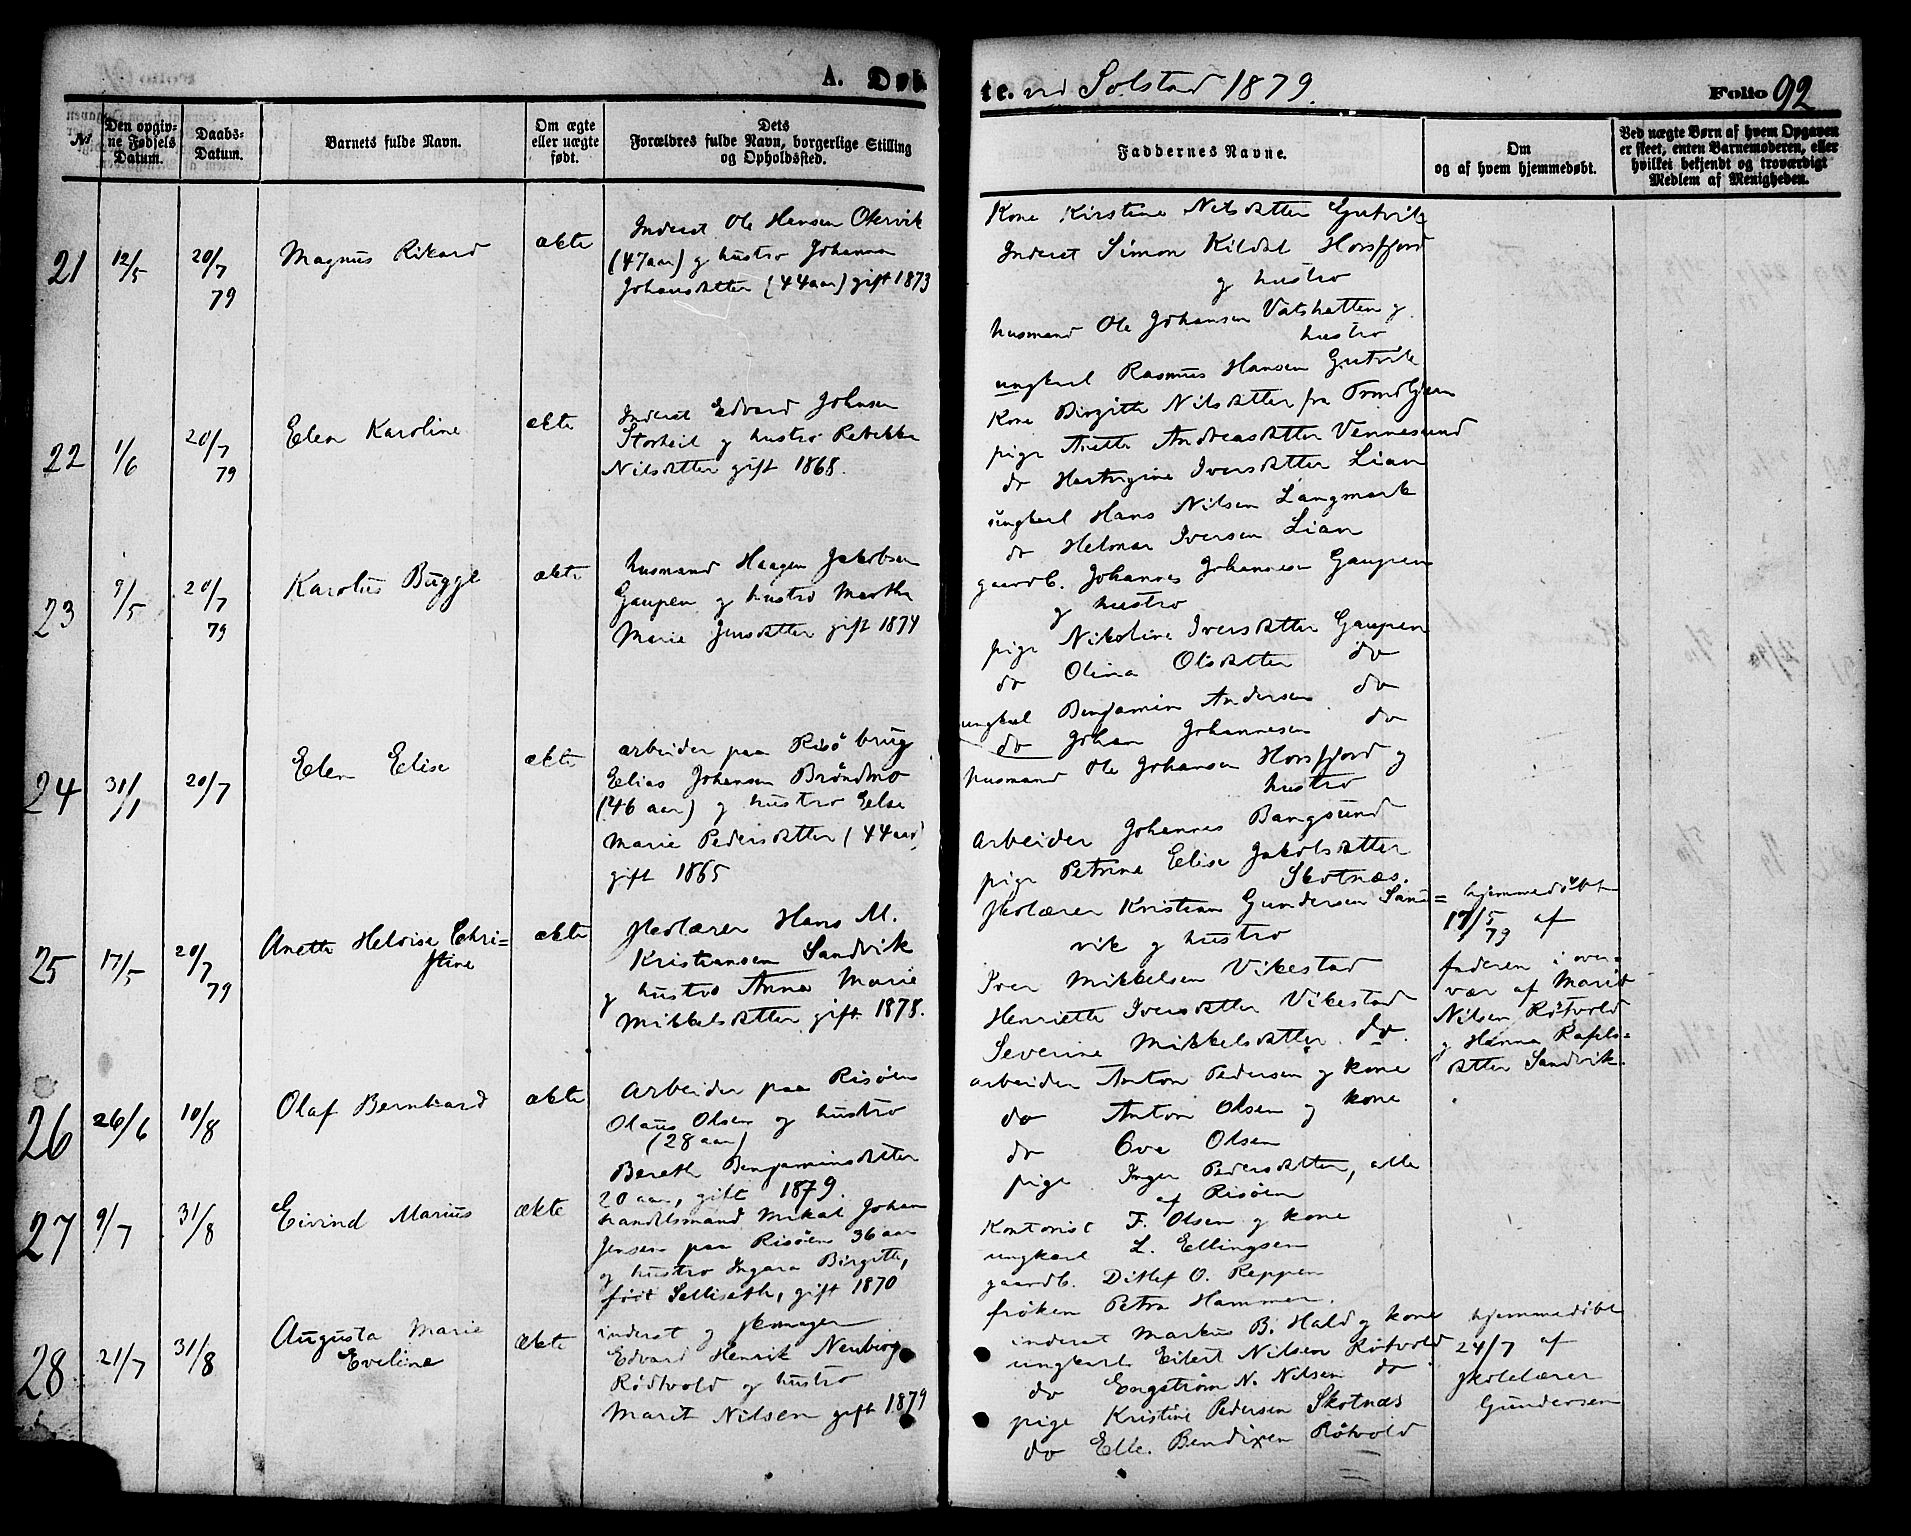 A. Døb
te. ved Solstad 1879.
Folio 92
No
Den opgiv-
ne Fødsels
Datum.
Daabs-
Datum.
Barnets fulde Navn.
Om ægte
eller uægte
født.
Dets
Forældres fulde Navn, borgerlige Stilling
og Opholdssted.
Faddernes Navne.
Om
og af hvem hjemmedøbt.
Ved uægte Børn af hvem Opgaven
er skeet, enten Barnemoderen, eller
hvilket bekjendt og troværdigt
Medlem af Menigheden.
21 12/5 20/7 79 Magnus Rikard ækte
Inderst Ole Hansen Okervik
(47 aar) og hustro Johanna
Johansdatter (44 aar) gift 1873
Kone Kirstine Nilsdatter Gutvik
Inderst Simon Kildal Horsfjord
og hustro
husmand Ole Johansen Valshatten og
hustro
ungkarl Rasmus Hansen Gutvik
22 1/6 20/7 79 Elen Karoline ekte
Inderst Edvard Johnsen
Storheil og hustro Rebekka
Nilsdatter gift 1868.
Kone Birgitte Nilsdatter fra Trondhjem
pige Anette Andreasdatter Vennesund
do Hartvigine Iversdatter Lian
ungkarl Hans Nilsen Langmark
do Helmer Iversen Lian
23 9/5 20/7 79 Karolus Bugge ækte
husmand Haagen Jakobsen
Gaupen og hustro Martha
Marie Jensdatter gift 1874
gaardb. Johannes Johannesen Gaupen
og hustro
pige Nikoline Iversdatter Gaupen
do Olina Olsdatter do
ungkarl Benjamin Andersen do
do Johan Johannesen do
24 31/1 20/7 Elen Elise ækte
arbeider paa Risö brug
Elias Johansen Bröndmo
(46 aar) og hustro Else
Marie Pedersdatter (44 aar)
gift 1865
husmand Ole Johansen Horsfjord og
hustro
arbeider Johannes Bangsund
pige Petrine Elise Jakobsdatter
Skotnæs.
25 17/5 20/7 79 Anette Heloise Chri=
stine ækte
skolærer Hans M.
Kristiansen Sandvik
og hustro Anna Marie
Mikkelsdatter gift 1878.
skolærer Kristian Gundersen Sand=
vik og hustro
Iver Mikkelsen Vikestad
Henriette Iversdatter Vikestad
Severine Mikkelsdatter do
hjemmedöbt
17/5 79 af
faderen i over-
vær af Marit
Nilsen Rötvold
og Hanna Rafels=
datter Sandvik.
26 26/6 10/8 Olaf Bernhard ækte
Arbeider paa Risöen
Olaus Olsen og hustro
(28 aar)
Bereth Benjaminsdatter
20 aar, gift 1879.
arbeider Anton Pedersen og kone
do Anton Olsen og kone
do Ove Olsen
pige Inger Pedersdatter, alle
af Risöen
27 9/7 31/8 Eivind Marius ækte
handelsmand Mikal Johan
Jensen paa Risöen 36 aar
og hustro Ingara Birgitte,
födt Selliseth, gift 1870
Kontorist F. Olsen og kone
ungkarl L. Ellingsen
gaardb. Ditlef O. Reppen
fröken Petra Hammer.
28 21/7 31/8 Augusta Marie
Eveline ækte
inderst og skomager
Edvard Henrik Neuberg
Rödtvold og hustro
Marit Nilsen gift 1879
inderst Markus B. Hald og kone
ungkarl Eilert Nilsen Rötvold
do Engström N. Nilsen do
pige Kristine Pedersen Skotnæs
do Elle. Bendixen Rötvold
hjemmedöbt
24/7 af
skolelærer
Gundersen